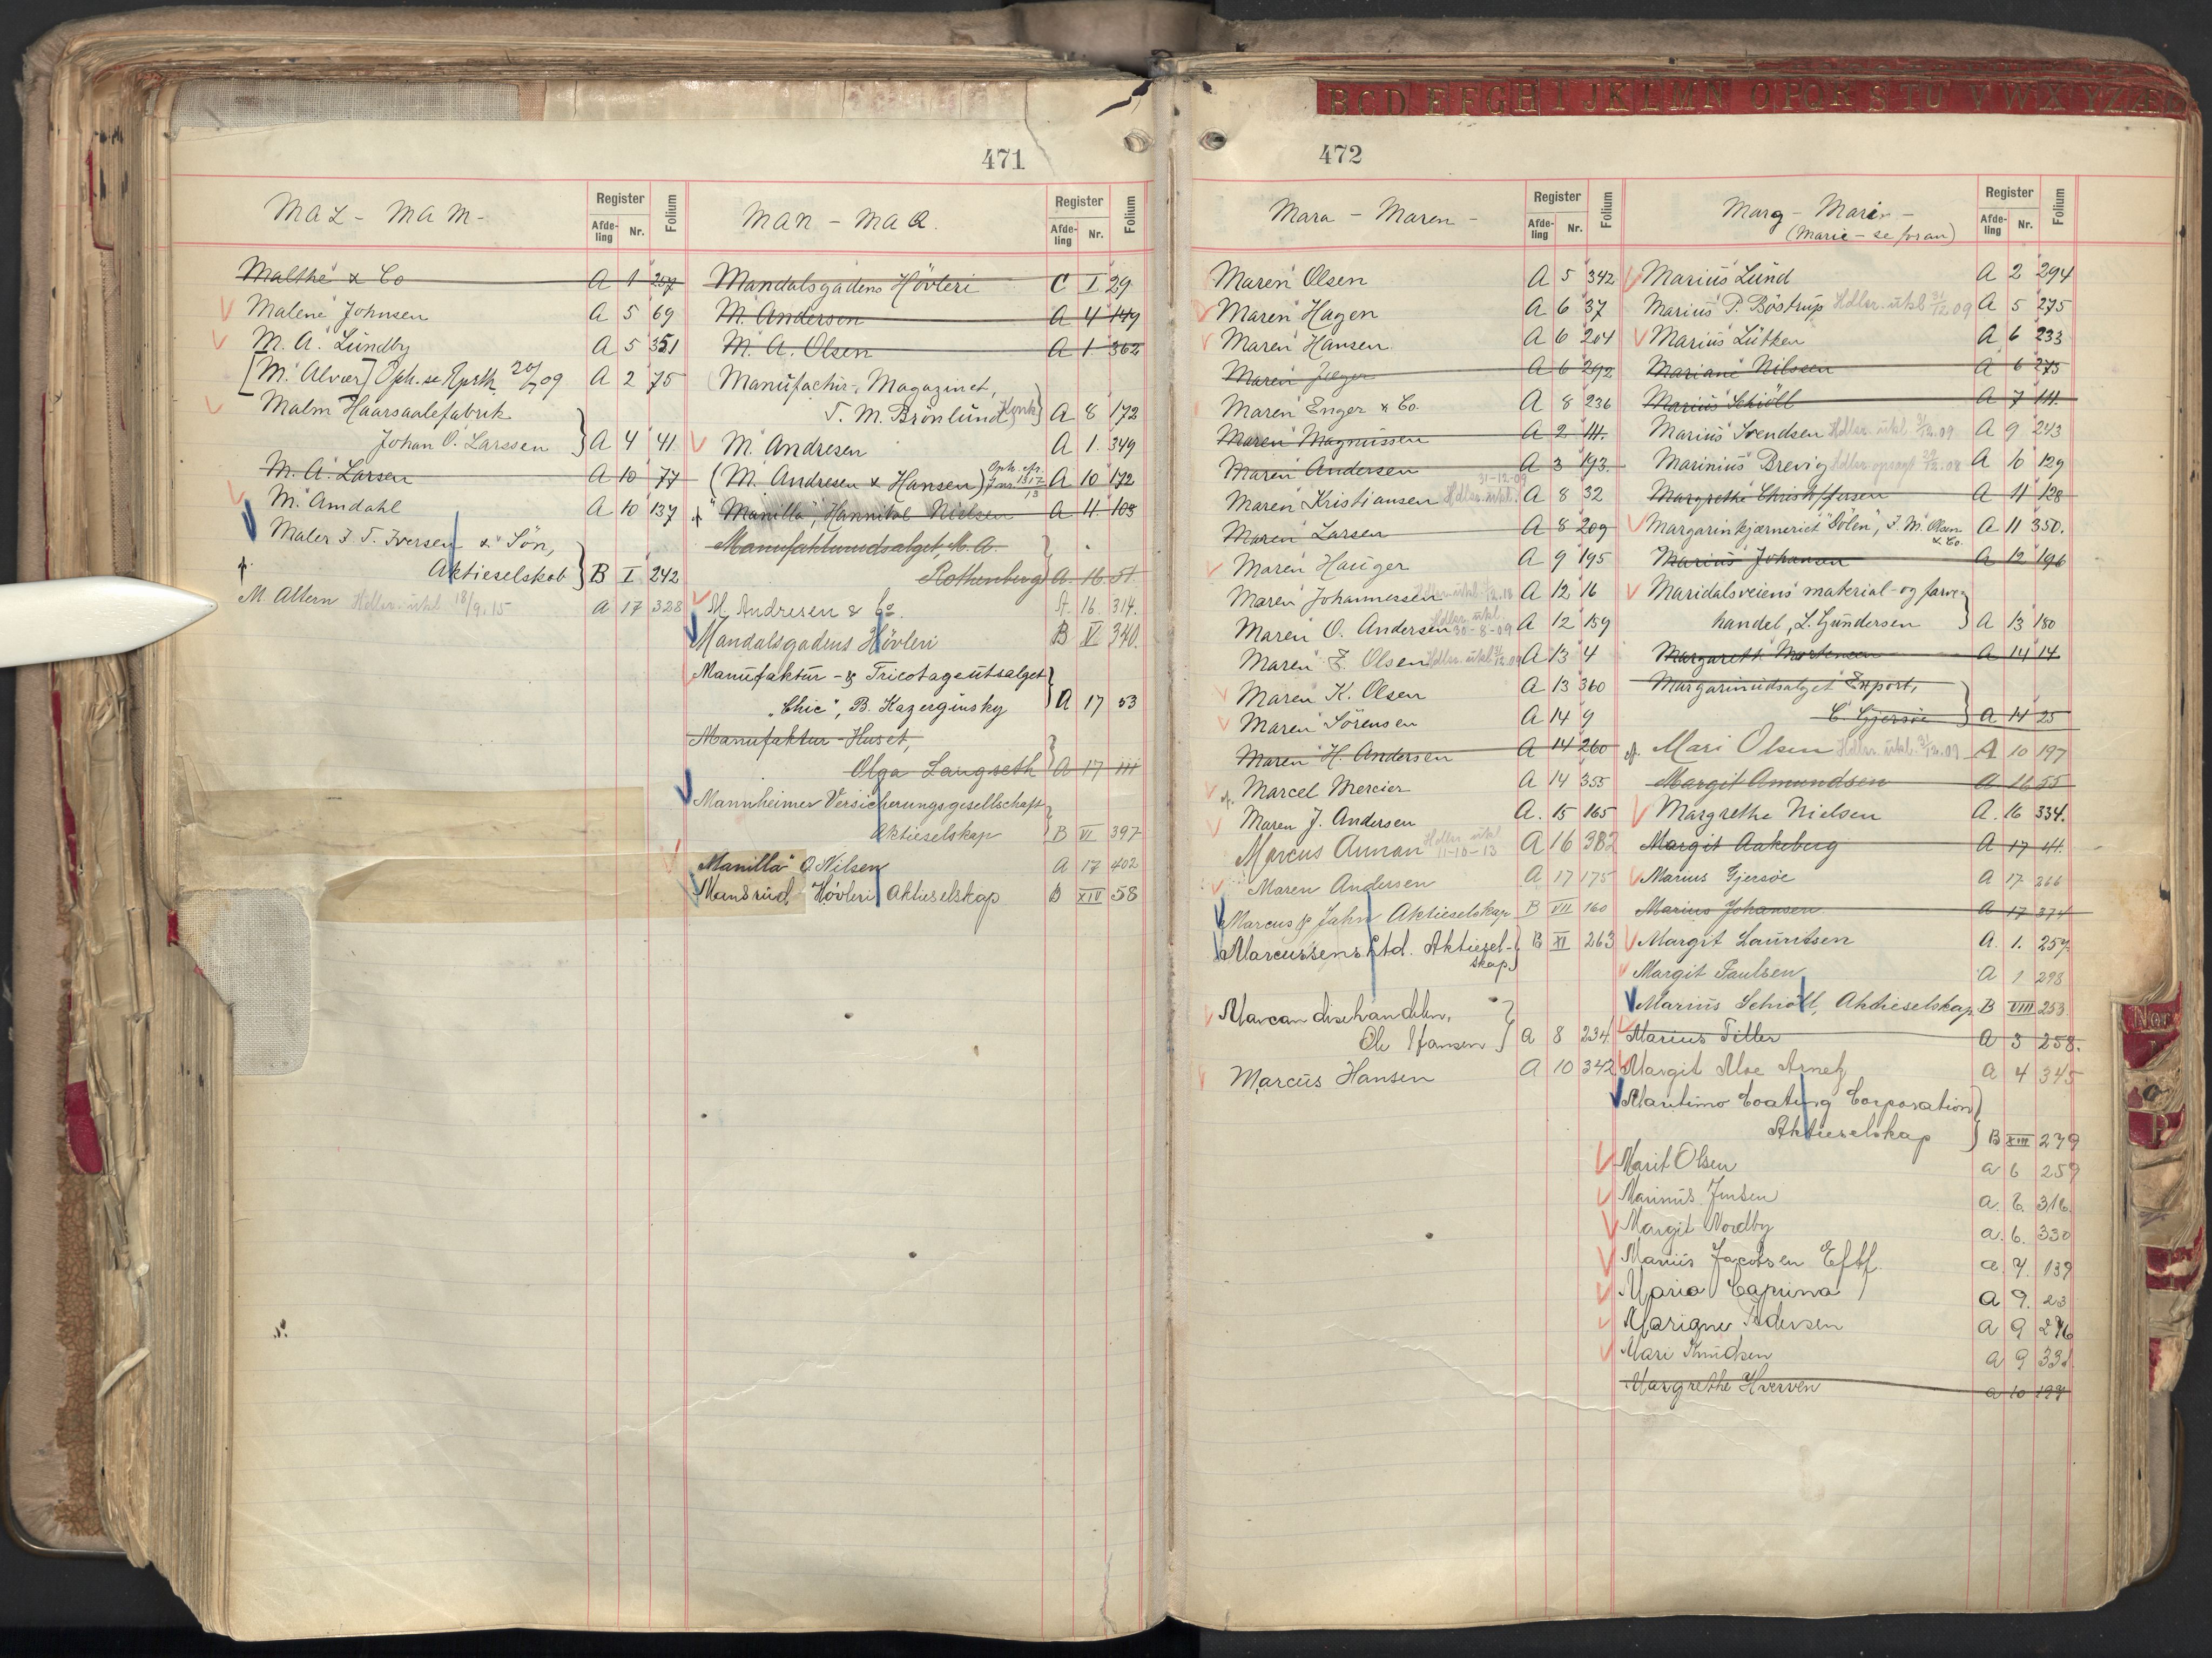 471
MAL - MAM -
Register
Afde-
ling
Nr.
Folium
Malthe & Co A 1 257
Malene Johnsen A 5 69
M. A. Lundby A 5 351
[M. Alver] Oph. se Rpstk. 20/7 09 A 2 75
Malm Haarsaalefabrik
Johan O. Larssen } A 4 41
M. A. Larsen A 10 77
M. Amdahl A 10 137
Maler F. T. Iversen & Sön,
Aktieselskab } B I 242
M Altern Hdlsr. utkl. 18/9.15 A 17 328
MAN - MAQ.
Register
Afde-
ling
Nr.
Folium
Mandalsgadens Hövleri C I 29
M. Andersen A 4 149
M. A. Olsen A 1 362
Manufactur-Magazinet,
T. M. Brönlund Konk. } A 8 172
M. Andresen A 1. 349
(M. Andresen & Hansen) A 10 172
"Manilla", Hannibal Nielsen A 11. 103
Manufakturudsalget, M. A.
Rothenberg } A. 16. 51
M. Andresen & Co. A. 16. 314.
Mandalsgadens Hövleri B V 340.
Manufaktur- & Tricotageutsalget
"Chic", B. Kazerginsky } A 17 53
Manufaktur-Huset,
Olga Langseth } A 17 111
Mannheimer Versicherungsgesellschaft
Aktieselskap } B VI 397
"Manilla" O. Nilsen A 17 402
Mansrud Hövleri Aktieselskap B XIV 58
B C D E F G H I J K L M N O P Q R S T U V W X Y Z Æ
472
Mara - Maren -
Register
Afde-
ling
Nr.
Folium
Maren Olsen A 5 342
Maren Hagen A 6 37
Maren Hansen A 6 204
Maren Jæger A 6 292
Maren Enger & Co. A 8 236
Maren Magnussen A 2 111.
Maren Andersen A 3 193.
Maren Kristiansen Hdlsr. utkl. 31-12-09 A 8 32
Maren Larsen A 8 209
Maren Hauger A 9 195
Maren Johannessen A 12 16
Maren O. Andersen Hdlsr. utkl. 30-8-09 A 12 159
Maren E. Olsen Hdlsr. utkl. 31/12.09 A 13 4
Maren K. Olsen A 13 360
Maren Sörensen A 14 9
Maren H. Andersen A 14 260
Marcel Mercier A 14 355
Maren J. Andersen A. 15 165
Marcus Aunan Hdlsr utkl 11-10-13 A 16 382
Maren Andersen A 17 175
Marcus & Jahn Aktieselskap B VII 160
Marcussens Ltd. Aktiesel-
skap } B XI 263
Marcandisehandelen,
Ole Hansen } A 8 234
Marcus Hansen A 10 342
Marg - Marin -
(Marie - se foran)
Register
Afde-
ling
Nr.
Folium
Marius Lund A 2 294
Marius P. Böstrup Hdlsr. utkl. 31/12 09 A 5 275
Marius Lütken A 6 233
Mariane Nilssen A 6 275
Marius Schiöll A 7 111.
Marius Svendsen Hdlsr. utkl. 31/12.09 A 9 243
Marinius Brevig A 10 129
Margrethe Christoffersen A 11 128
Margarinkjærneriet "Dölen", F. M. Olsen
& Co. A 11 350.
Marius Johansen A 12 196
Maridalsveiens material- og farve-
handel, L. Gundersen } A 13 180
Margareth Mortensen A 14 14
Margarinudsalget Export,
C. Gjersöe } A 14 25
Mari Olsen Hdlsr. utkl. 31/12.09 A 10 197
Margit Amundsen A 16 55
Margrethe Nielsen A. 16 334.
Margit Aakeberg A 17 41.
Marius Gjersöe A 17 266
Marius Johansen A 17 374
Margit Lauritsen A. 1. 257
Margit Paulsen A 1 293
Marius Schiöll, Aktieselskap B VIII 253
Marius Titler A 3 258.
Margit Moe Arnet A 4 345
Maritimo Coating Corporation
Aktieselskap } B XIII 279
Marit Olsen A 6 259
Marinus Jensen A. 6. 316.
Margit Nordby A. 6. 330
Marius Jacobsen Eftf. A. 7. 139
Maria Caprina A 9. 23
Marigne Pedersen A 9 276
Mari Knudsen A 9 331.
Margrethe Hverven A 10 198
Nor
P